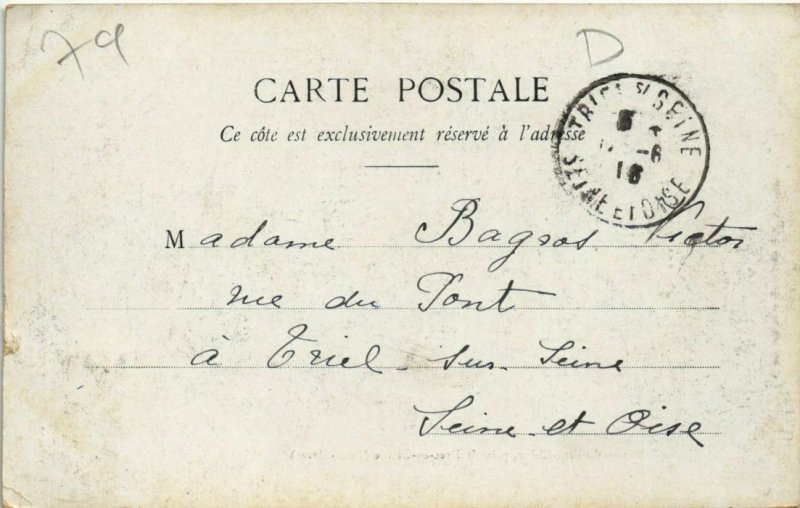 79
D
CARTE POSTALE
Ce côte est exclusivement réservé à l'adresse
TRIEL S/ SEINE
-6
16
SEINE ET OISE
Madame Bagros Victor
rue du Pont
à Triel-sur-Seine
Seine-et Oise